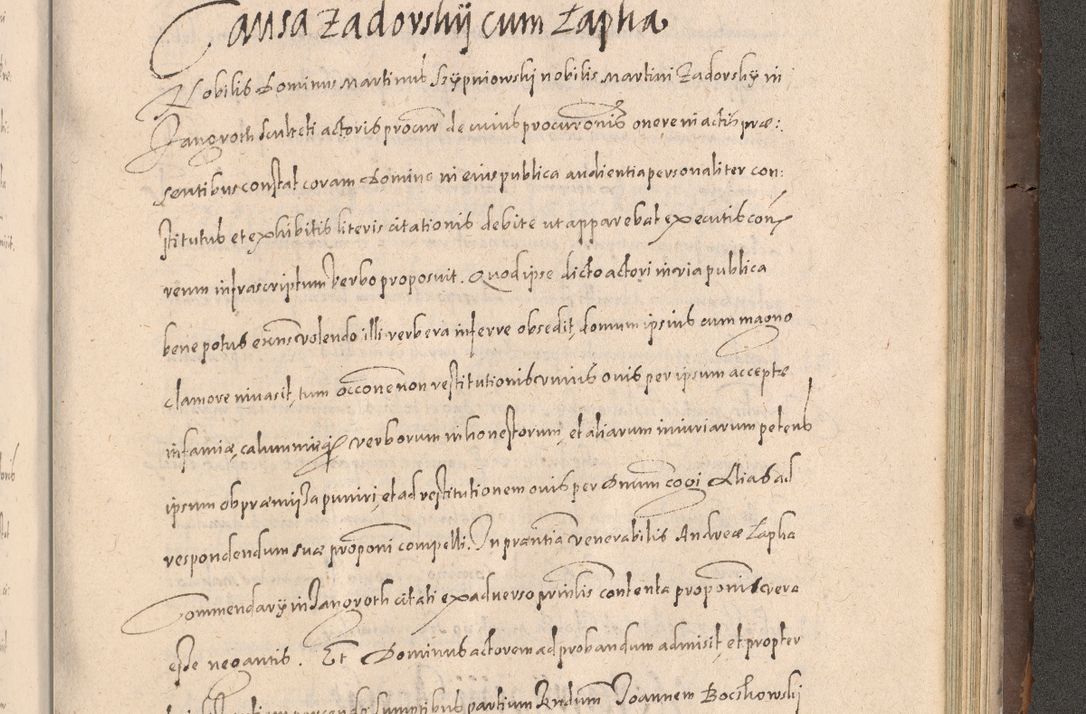 Causa Zadorskÿ cum Łapka
Nobilis Dominus Martinus Szÿpniowski nobilis Martini Zadorskÿ in
Jangroth Sculteti actoris procur̃ de cuius procuronis onere in actis præ:
sentibus constat coram Domino in eius publica audientia personaliter con:
stitutus et exhibitis literis citationis debite ut apparebat executis con
reum infrascriptum verbo proposuit. Quod ipse dicto actori in via publica
bene potus exiens volendo illi verbera inferre obsedit, domum ipsius cum magno
clamore invasit, tum occone non restitutionis unius ovis per ipsum acceptæ
infamiæ, calumniæq verborum inhonestorum, et aliarum iniuriarum petens
ipsum ob præmissa puniri, et ad restitutionem ovis per Dnum cogi Alias ad
respondendum suæ proponi compelli. In præntia venerabilis Andreæ Łapka
Commendarÿ in Jangroth citati ex adverso prinlis contenta proponis vera
esse negantis. Et Dominus actorem ad probandum admisit, et propter
sumptibus partium Rndum Joannem Boczkowski